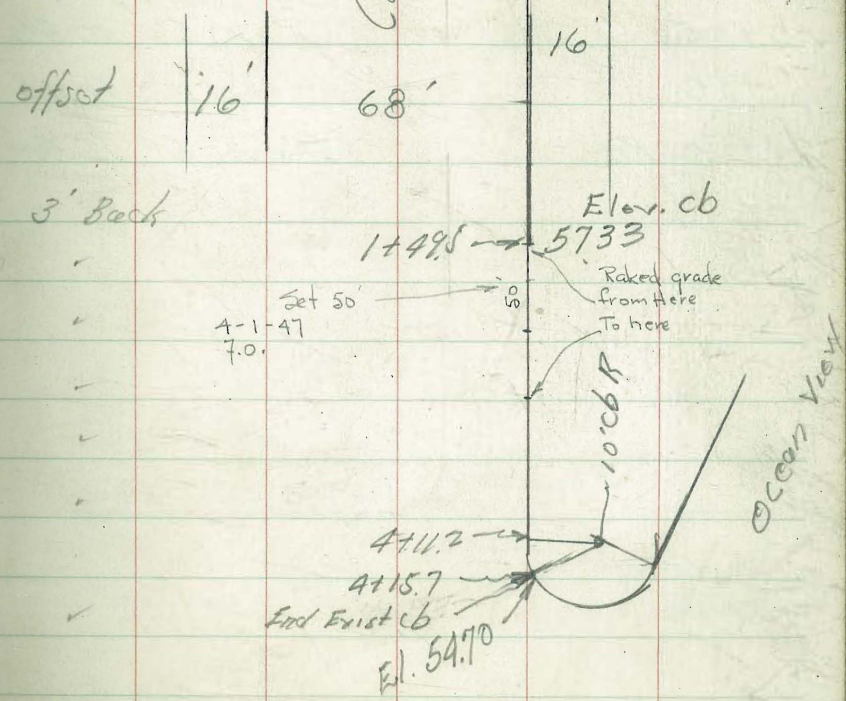 16'
offset 16' 68'
3' Back
Elev. cb
1+49.5 5733
Raked grade
from Here
To here
Set 50'
50'
4-1-47
7.0.
10' cb R
Ocean View
4+11.2
4+15.7
End Exist cb
El. 54.70